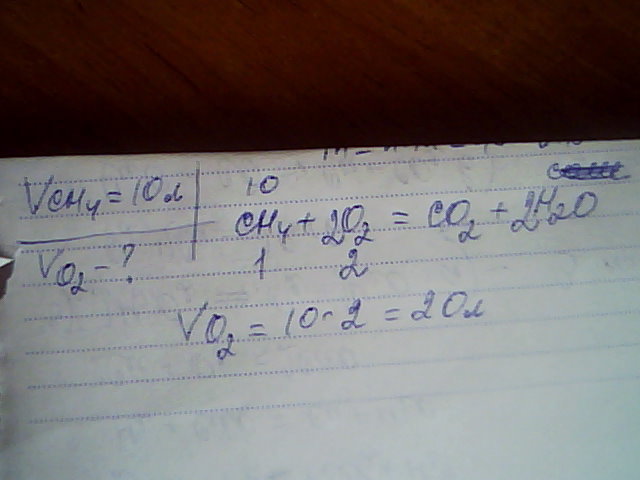 VCH₄ = 10л
10
CH₄ + 2O₂ = CO₂ + 2H₂O
VO₂ - ?
1 2
VO₂ = 10 · 2 = 20л